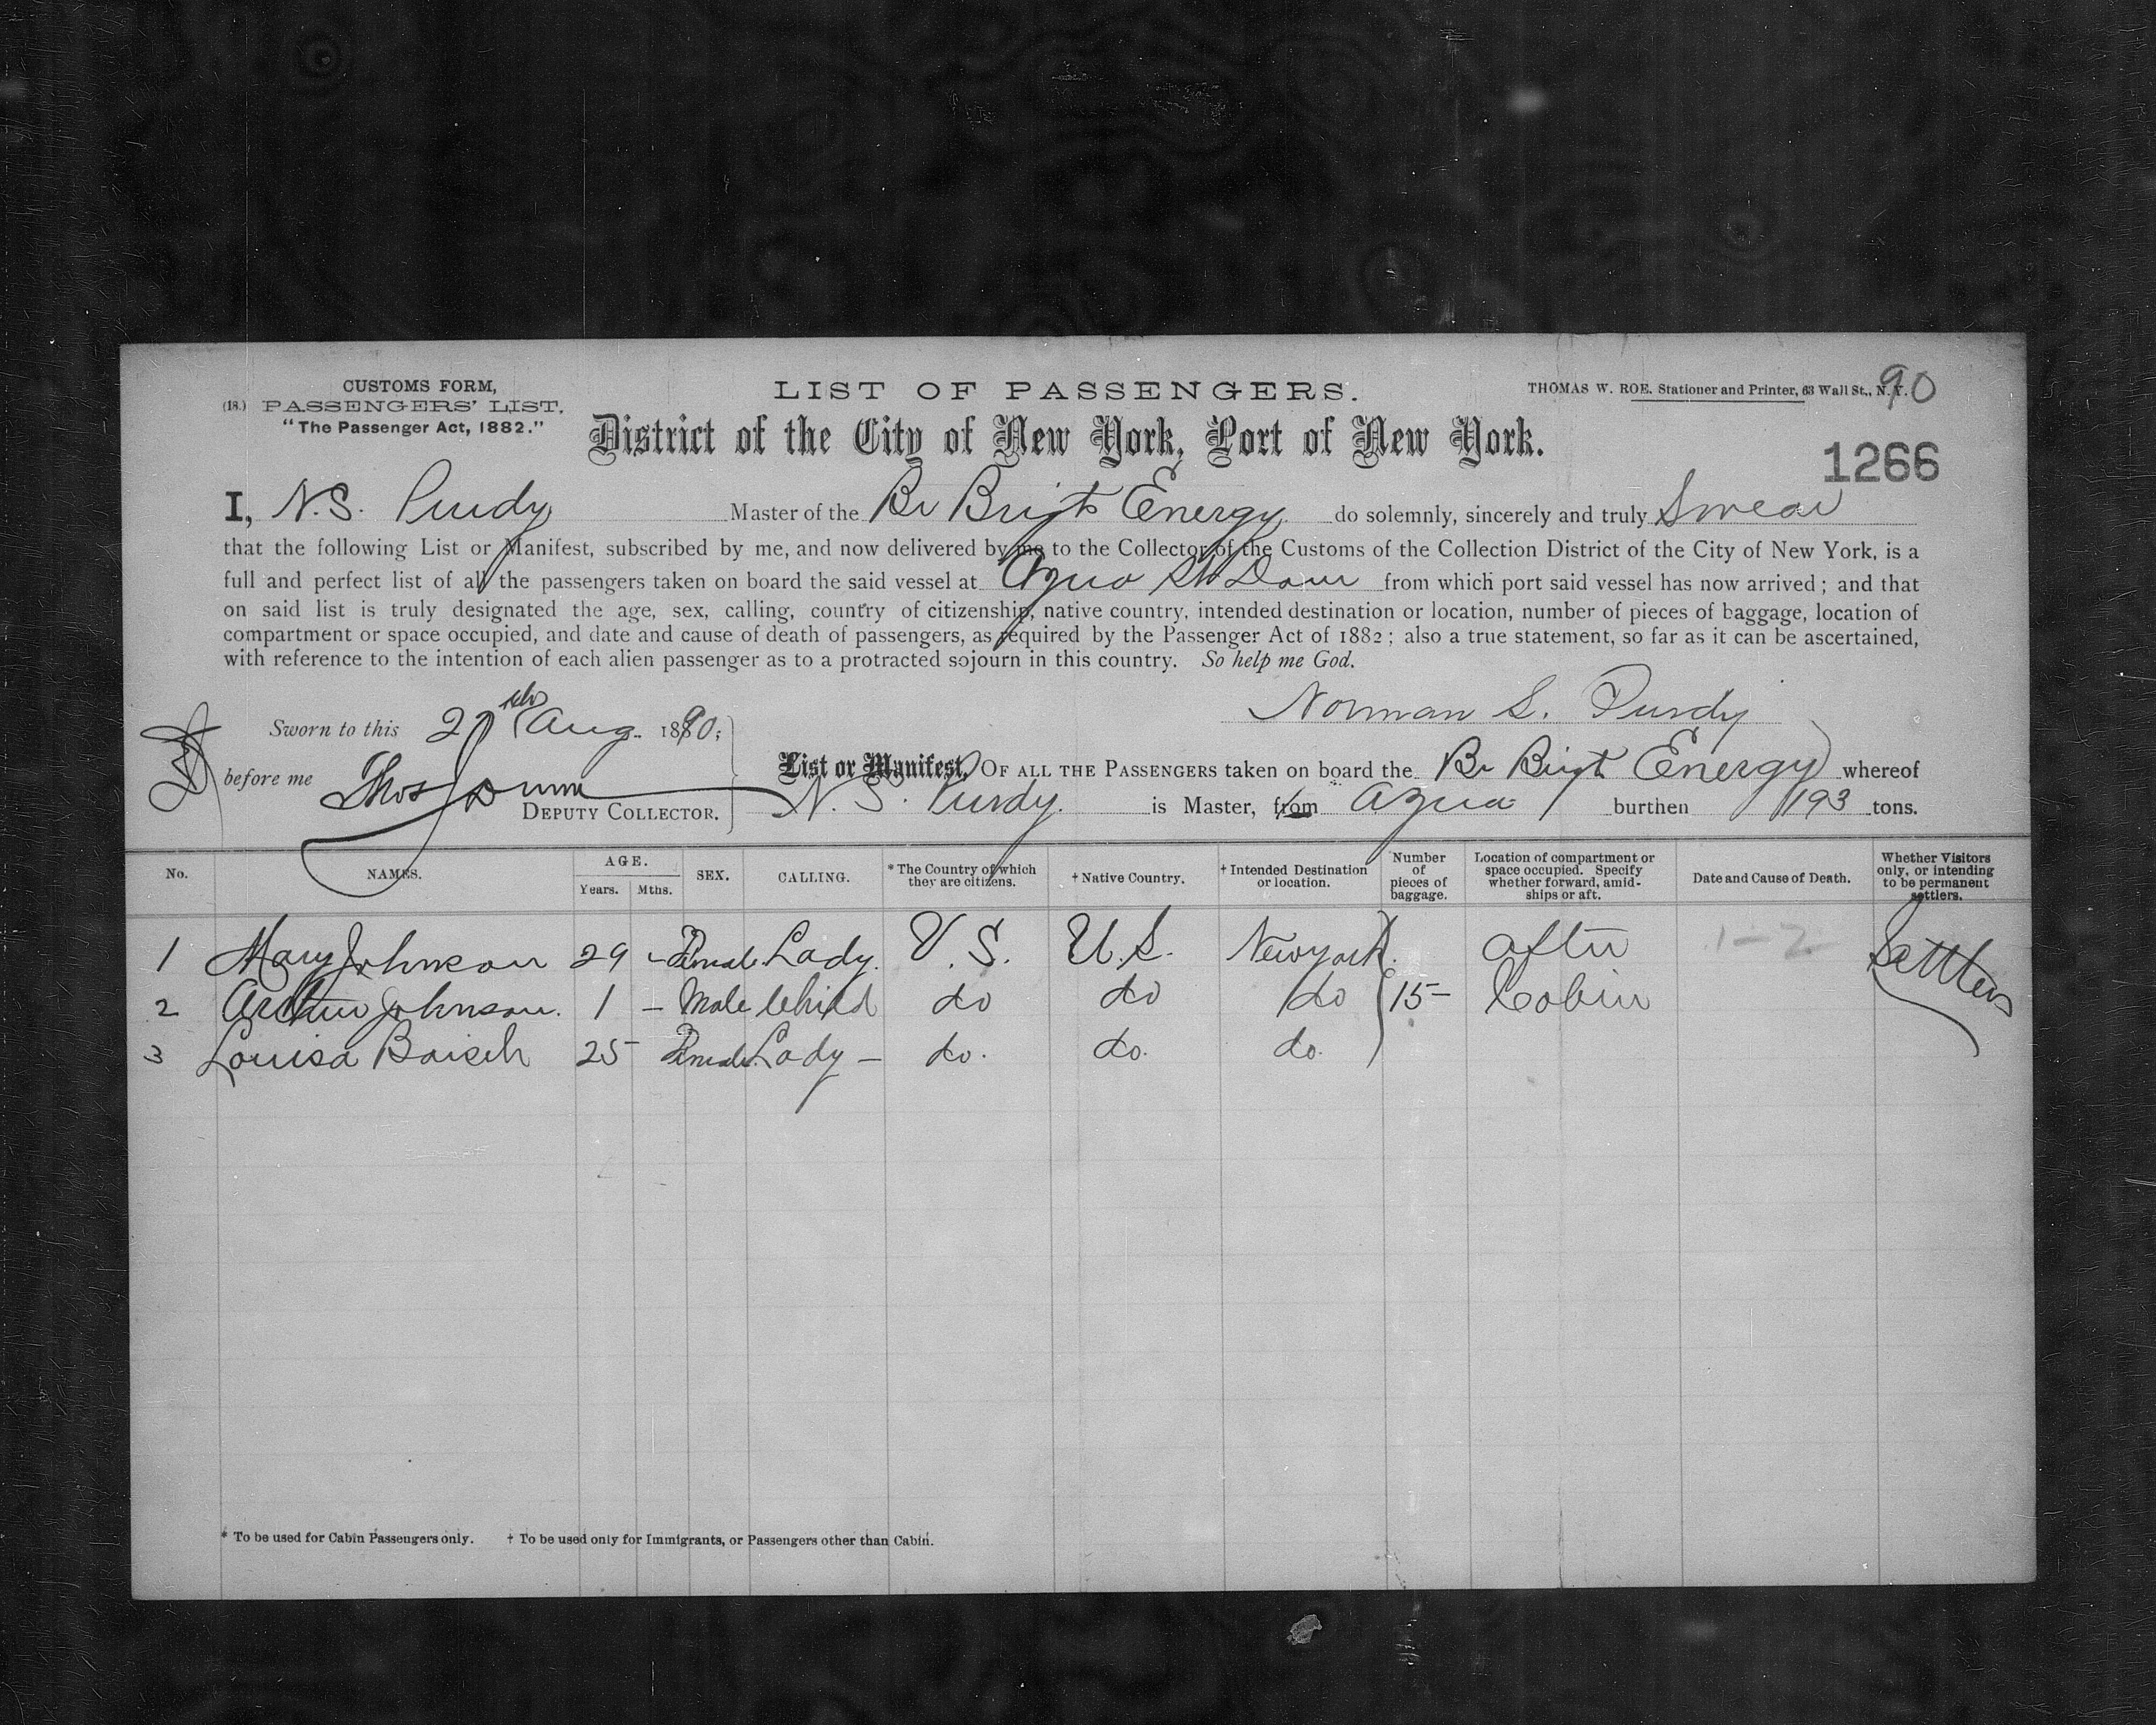 CUSTOMS FORM,
(18.) PASSENGERS' LIST.
"The Passenger Act, 1882."
LIST OF PASSENGERS.
THOMAS W. ROE. Stationer and Printer, 63 Wall St., N.Y.
90
District of the City of New York, Port of New York.
1266
I, N.S. Purdy Master of the Br Brigt Energy do solemnly, sincerely and truly Swear
that the following List or Manifest, subscribed by me, and now delivered by me to the Collector of the Customs of the Collection District of the City of New York, is a
full and perfect list of all the passengers taken on board the said vessel at Azua St Dom from which port said vessel has now arrived; and that
on said list is truly designated the age, sex, calling, country of citizenship, native country, intended destination or location, number of pieces of baggage, location of
compartment or space occupied, and date and cause of death of passengers, as required by the Passenger Act of 1882; also a true statement, so far as it can be ascertained,
with reference to the intention of each alien passenger as to a protracted sojourn in this country. So help me God.
Norman S. Purdy
Sworn to this Aug. 1890;
before me Thos Dunn
DEPUTY COLLECTOR.
List or Manifest, OF ALL THE PASSENGERS taken on board the Br Brigt Energy whereof
N. S. Purdy. is Master, from Azua burthen 193 tons.
No. NAMES. AGE. Years. Mths. SEX. CALLING. * The Country of which they are citizens. † Native Country. † Intended Destination or location. Number of pieces of baggage. Location of compartment or space occupied. Specify whether forward, amidships or aft. Date and Cause of Death. Whether Visitors only, or intending to be permanent settlers.
1 Mary Johnson 29 - Female Lady. U.S. U.S. New York after 1-2 Settlers
2 Arthur Johnson. 1 - Male Child do do do 15- Cabin
3 Louisa Baisch 25 Female Lady - do. do. do.
* To be used for Cabin Passengers only. † To be used only for Immigrants, or Passengers other than Cabin.